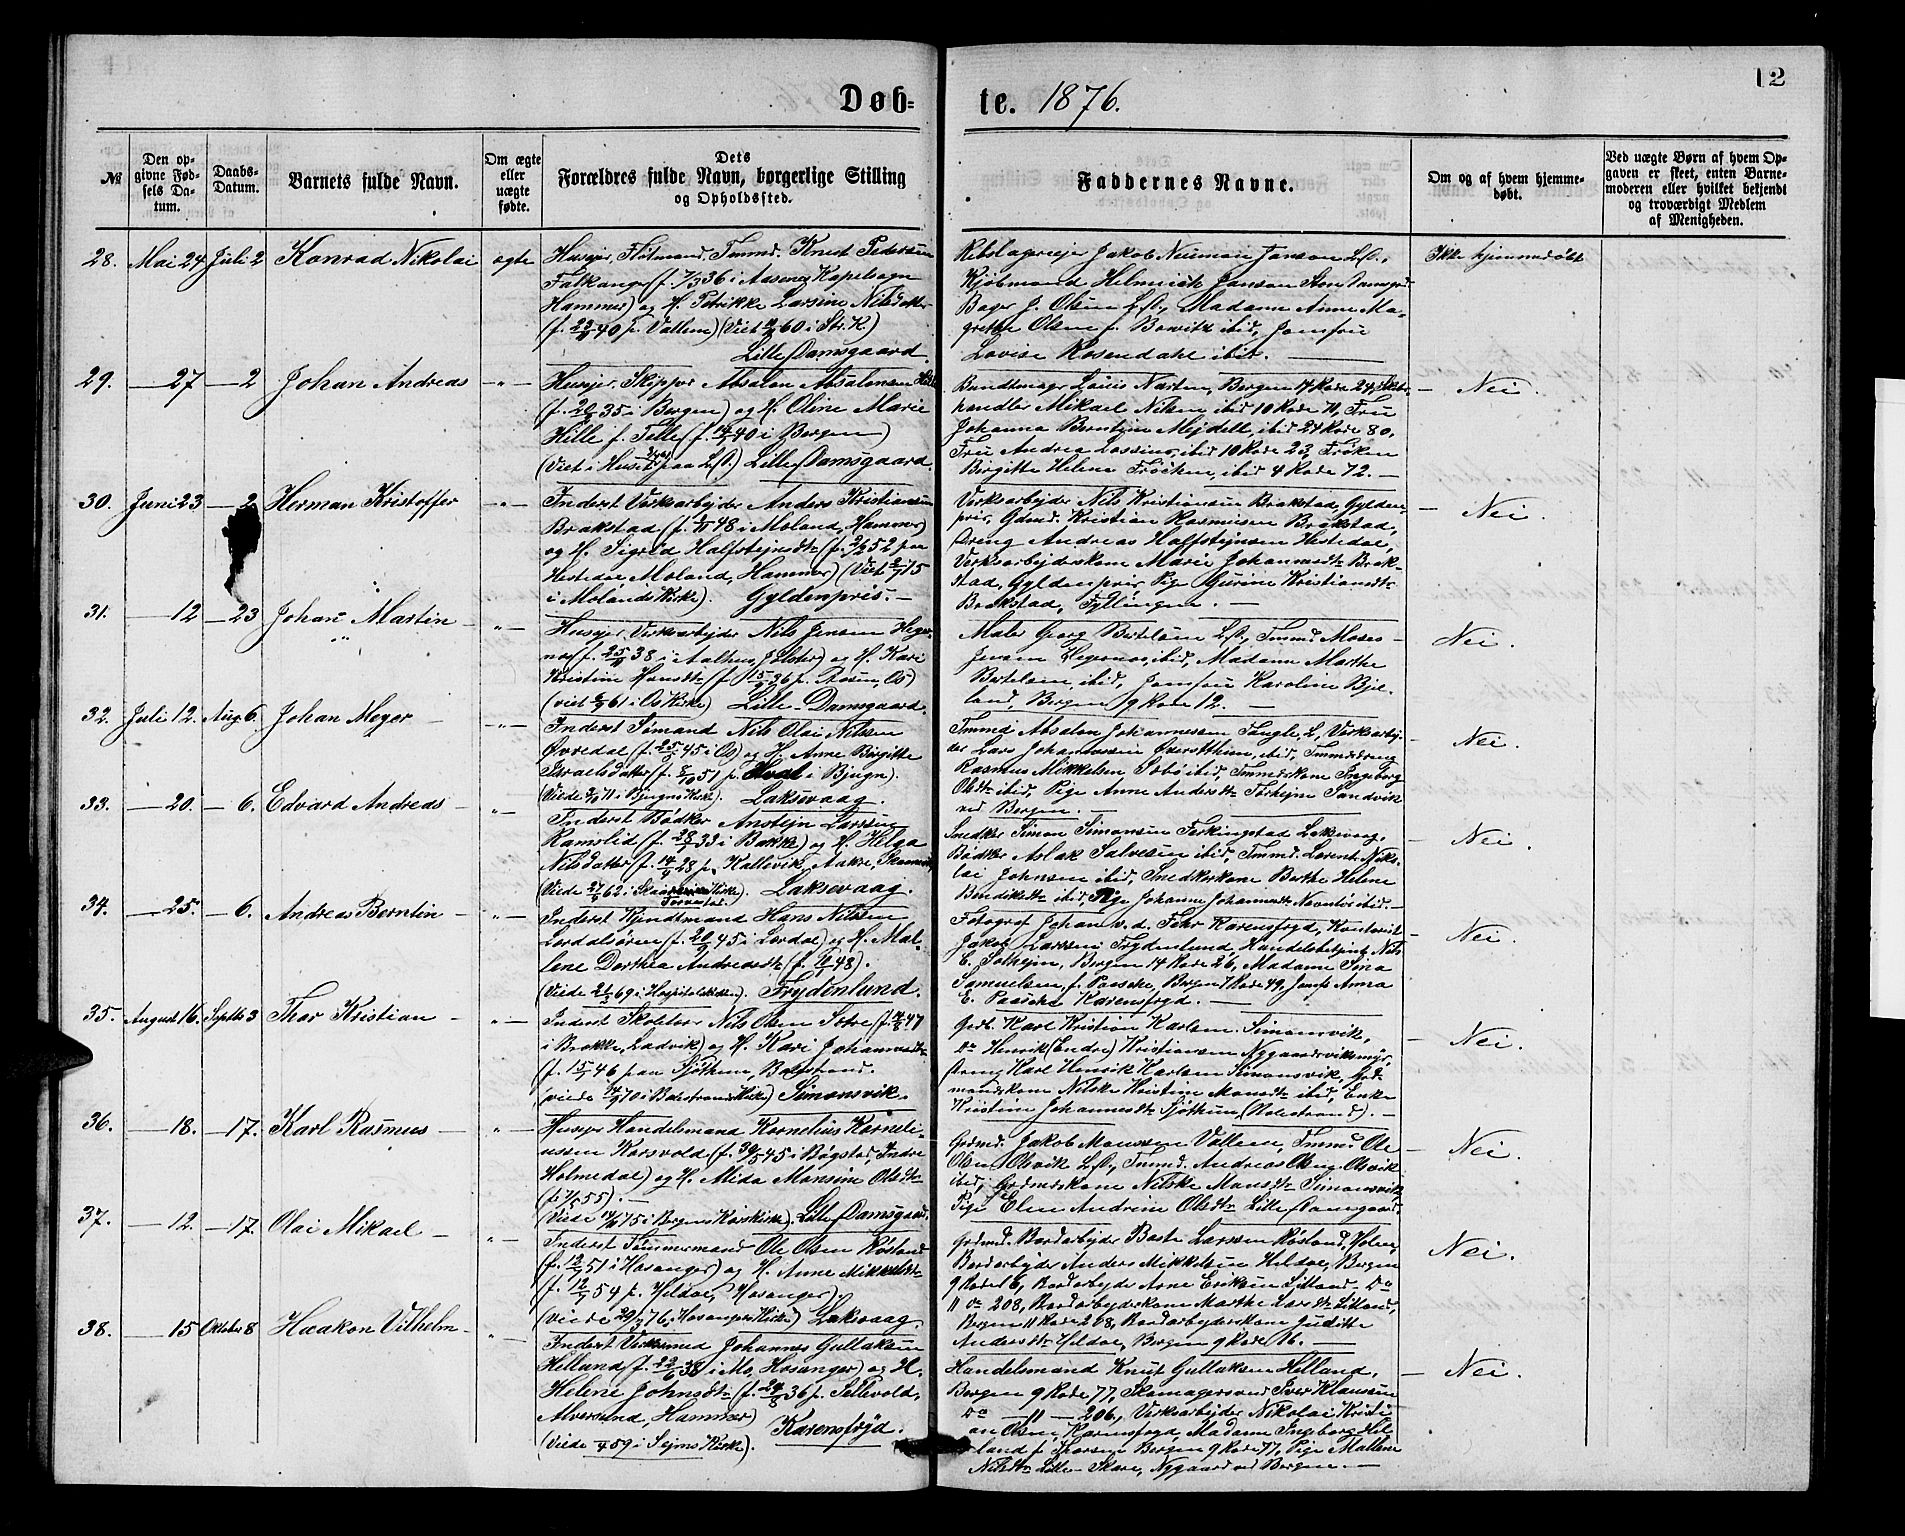 12
Døb= te. 1876.
№
Den op-
givne Fød-
sels Da-
tum.
Daabs-
Datum.
Barnets fulde Navn.
Om ægte
eller
uægte
fødte.
Dets
Forældres fulde Navn, borgerlige Stilling
og Opholdssted.
Faddernes Navne.
Om og af hvem hjemme-
døbt.
Ved uægte Børn af hvem Op-
gaven er skeet, enten Barne-
moderen eller hvilket bekjendt
og troværdigt Medlem
af Menigheden.
28. Mai 24 Juli 2 Konrad Nikolai ægte
Knut Pedersen
Hammer) og H. Petrikke Larsine Nilsdatter
Lille Damsgaard.
Jakob Neuman Janson L. D.,
Kjøbmand Helmich Janson Store Damsgd
Bager J. Olsen L. D., Madame Anne Ma-
grethe Olsen f. ibid, Jomfru
Lovise Rosendahl ibid.
Ikke hjemmedøbt
29. — 27 — 2 Johan Andreas —"—
Husejer, Skipper Absalon Absalonsen Hille
(f. 20 35 i Bergen) og H. Oline Marie
Hille f. Telle (f. 40 i Bergen)
(Viet i Huset paa L. D.) Lille Damsgaard
Bergen 14 Rode 24,
handler Mikael Nilsen ibid 10 Rode 71, Fru
Johanna Berntzen Mejdell, ibid 24 Rode 80,
Fru Andrea ibid 10 Rode 23, Frøken
Birgitte Helene ibid 4 Rode 72. —
— Nei.
30. Juni 23 — 2 Herman Kristoffer —"—
Inderst Verksarbejder Anders Kristiansen
Brakstad (f. 48 i Moland, Hammer)
og H. Sigrid Halfstejnsdtr (f. 52 paa
Hestedal Moland, Hammer) (Viet 75
i Molands Kirke). Gyldenpris. —
Verksarbejder Nils Kristiansen Brakstad, Gylden-
pris, Gdmd. Kristian Rasmusen Brakstad,
Dreng Andreas Halfstejnsen Hestedal,
Verksarbejderskone Marie Johannesdtr Brak-
stad, Gyldenpris, Pige Gurine Kristiansdtr
Brakstad, Fyllingen. —
— Nei.
31. — 12 — 23 Johan Martin —"—
Husejer Verksarbejder Nils Jensen Heger-
nes (f. 25 38 i Aalhus, Jølster) og H. Kari
Kristine Hansdtr (f. 15 36 f. Aasen, Os)
(viet 61 i Os Kirke) Lille-Damsgaard.
Maler Georg Bertelsen L. D., Tmmd. Moses
Jensen Hegernes, ibid, Madame Marthe
Bertelsen, ibid, Jomfru Karoline Bjel-
land, Bergen 9 Rode 12. —
— Nei.
32. Juli 12. Aug. 6. Johan Meyer — —"—
Inderst Sømand Nils Olai Nilsen
Øvredal (f. 25 45 i Os) og H. Anne Birgitte
Israelsdatter (f. 51 f. Hval i Bjugn).
(Viede 71 i Bjugns Kirke). Laksevaag.
Tmmd Absalon Johannessen Tangle, L., Verksarbej-
der Lars Johannessen ibid, Tmmdsdreng
Rasmus Mikkelsen Sæbø ibid, Tmmdskone Ingeborg
Olsdtr ibid, Pige Anne Andersdtr Sandvik
ved Bergen. —
— Nei.
33. — 20. — 6. Edvard Andreas — —"—
Inderst Bødker Anstejn Larssen
Ramslid (f. 28 33 i Bakke) og H. Helga
Nilsdatter (f. 14 28 f. Kallevik, Aakre, Skaanevik
(Viede 62 i Kirke). Laksevaag.
Snedker Simon Simonsen Ferkingstad Laksevaag,
Bødker Aslak Salvesen ibid, Tmmd. Lorents Niko-
lai Johnsen ibid, Snedkerkone Berthe Helene
Bendiksdtr ibid, Pige Johanne Johannesdtr ibid. —
— Nei.
34. — 25. — 6. Andreas Berntin — —"—
Inderst Hans Nilsen
Lærdalsøren (f. 20 45 i Lærdal) og H. Mal-
lene Dorthea Andreasdtr (f. 48).
(Viede 69 i Hospitalskirken). Frydenlund.
Fotograf Johan v. d. Fehr Karensfryd, Kontorist
Jakob Larssen Frydenlund, Handelsbetjent Nils
E. Solhejm, Bergen 14 Rode 26, Madame Sina
Samuelsen, f. Paasche, Bergen 7 Rode 49, Jomfr Anna
E. Paasche Karensfryd. —
— Nei.
35. August 16. Septb 3 Thor Kristian — —"—
Inderst Skolelærer Nils Olsen Sætre (f. 47
i Brekke, Ladvik) og H. Kari Johannesdtr
(f. 15 46 paa Sjøthun, Balestrand.
(viede 70 i Balestrands Kirke) Simonsvik.
Gdb. Karl Kristian Karlsen Simonsvik,
Do Henrik (Endre) Kristiansen Nygaardsviksmyr,
Dreng Karl Henrik Karlsen Simonsvik, Gd-
mandskone Nilske Kristine Monsdtr ibid, Enke
Kristine Johannesdtr Sjøthun, (Balestrand). —
— Nei.
36. — 18. — 17. Karl Rasmus — —"—
Husejer Handelsmand Kornelius Korneli-
ussen Korsvold (f. 30 45 i Bøgstad, Indre
Holmedal) og H. Alida Monsine Olsdtr
(f. 55). —
(Viede 75 i Bergens Korskirke). Lille Damsgaard.
Gdmd. Jakob Monssen Vallem, Tmmd. Ole
Olsen Olsvik L. D., Tmmd. Andreas Olsen Olsvik
ibid, Gdmdskone Nilske Monsdtr Simonsvik,
Pige Elen Andrine Olsdtr Lille Damsgaard.
— Nei.
37. — 12. — 17. Olai Mikael — —"—
Inderst Tømmermand Ole Olsen Røsland
(f. 12 51 i Hosanger) og H. Anne Mikkelsdtr
(f. 12 54 f. Heldal, Hosanger).
(viede 29 76 i Hosangers Kirke) Laksevaag.
Gdmd. Bordarbejder Baste Larssen Røsland, Holme,
Bordarbejder Anders Mikkelsen Heldal, Bergen
9 Rode 16, Bordarbejder Arne Eriksen Litland Do
11 Do 208, Bordarbejderskone Marthe Larsdtr Litland,
Bergen 11 Rode 208, Bordarbejderskone Juditte
Andersdtr Heldal, Bergen 9 Rode 16. —
— Nei.
38. — 15 Oktober 8 Haakon Vilhelm — —"—
Inderst Johannes Gullaksen
Helland (f. 22 38 i Hosanger) og H.
Helene Johnsdtr (f. 24/8 36 f. Tellevold,
Alversund, Hammer) Karensfryd.
(Viede 59 i Sejms Kirke).
Handelsmand Knut Gullaksen Helland,
Bergen 9 Rode 77, Skomagersvend Iver Klaussen
Do — 11 — 206, Verksarbejder Nikolai Kristi-
an Olsen Karensfryd, Madame Ingeborg Hel-
land f. Thorsen Bergen 9 Rode 77, Pige Mallene
Nilsdtr Skare, Nygaard ved Bergen. —
— Nei.